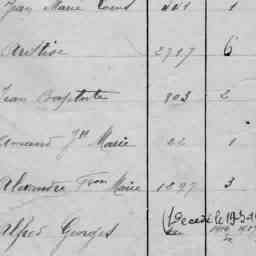 Jean Marie Louis 441 1
Aristise 2797 6
Jean Baptiste 803 2
Amand Jh Marie 22 1
Alexandre Fcois Marie 1897 3
Alfred Georges (Décédé le 19-3-19